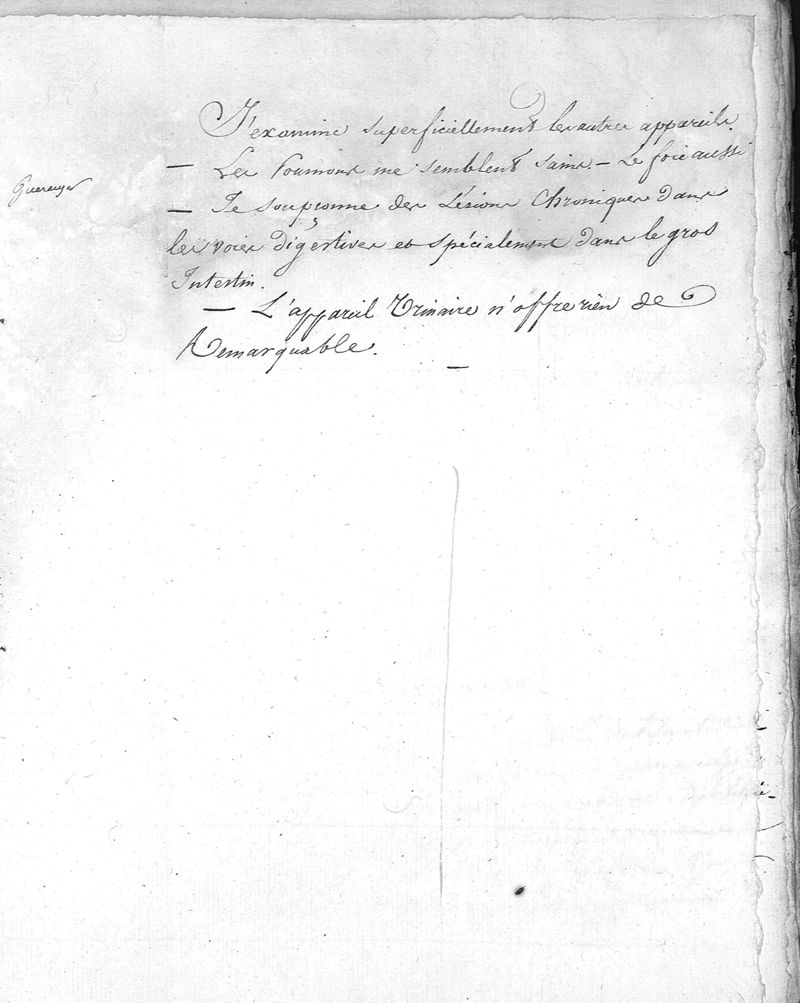 J'examine superficiellement les autres appareils.
— Les Poumons me semblent sains. — Le foie aussi
— Je soupçonne des Lésions Chroniques dans
les voies digestives et spécialement dans le gros
Intestin.
— L'appareil Urinaire n'offre rien de
Remarquable.
—